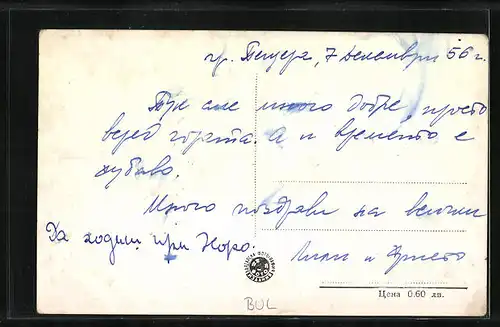 гр. Пещера, 7 декември 56 г.
Тук сме много добре, просто
всред гората. А и времето е
хубаво.
Много поздрави на всички
Да ходиш при Норо.
Лили и Христо
Цена 0.60 лв.
BUL